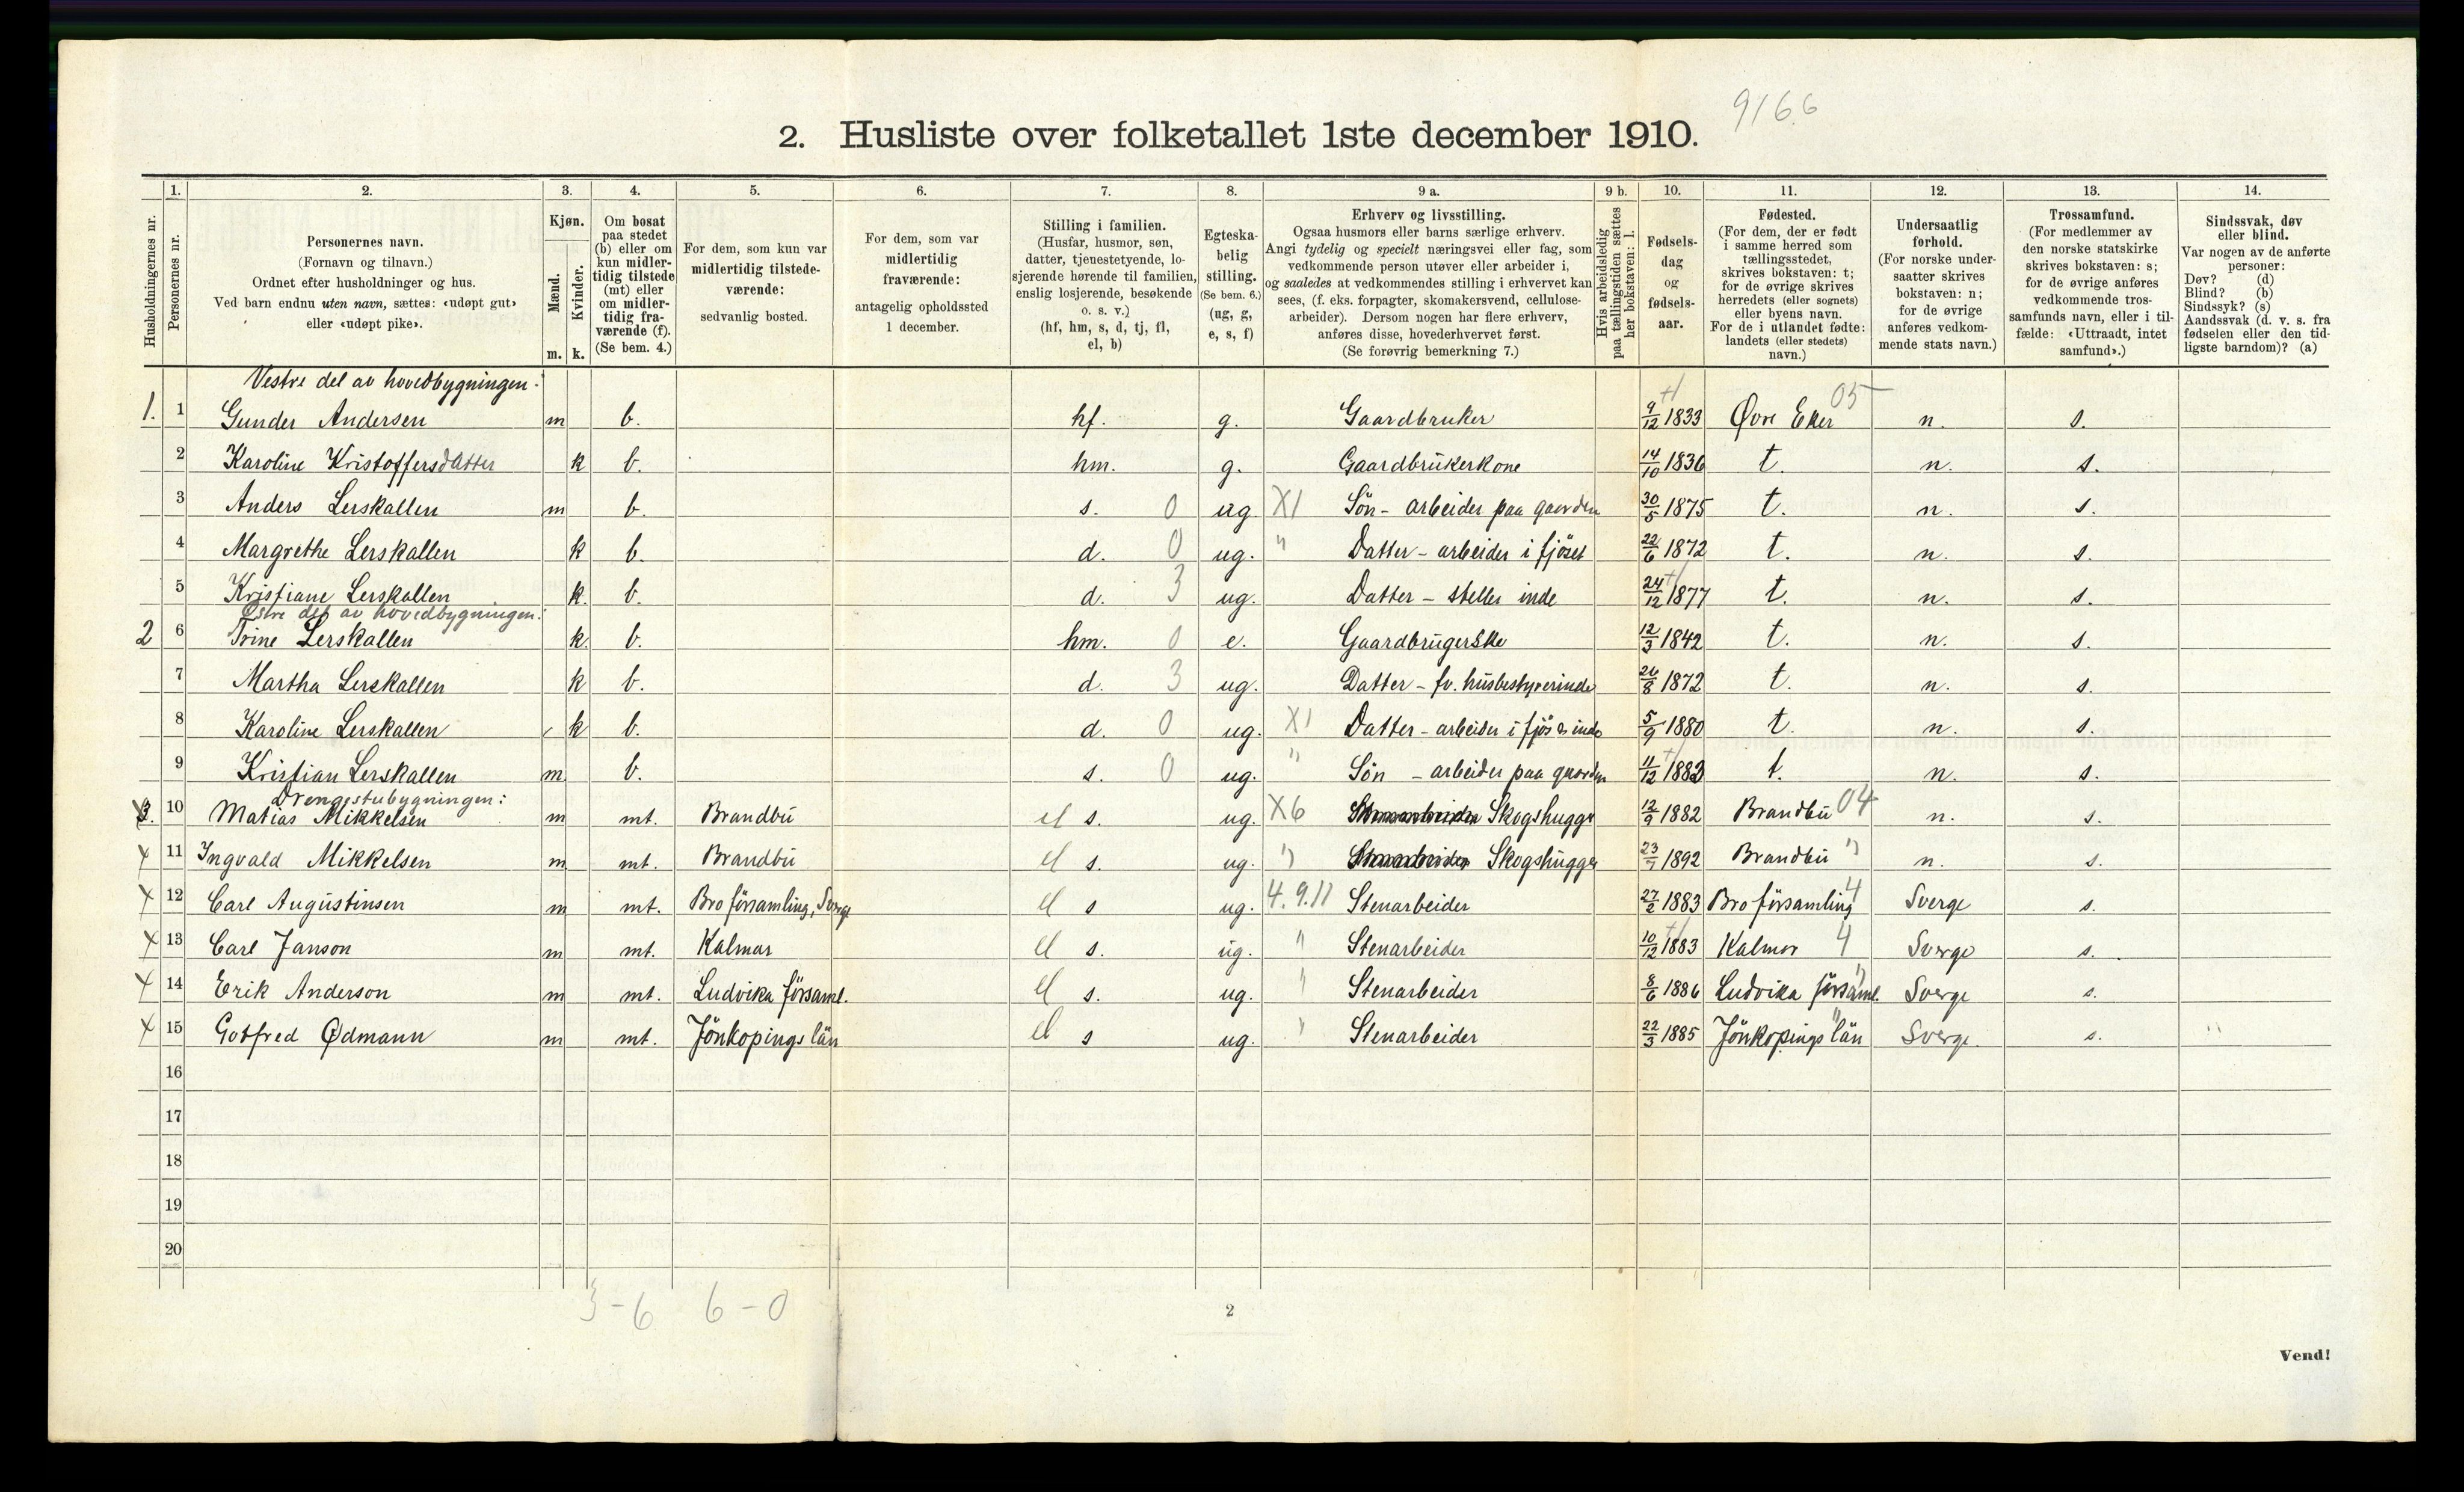 9166
2. Husliste over folketallet 1ste december 1910.
Husholdningernes nr.
1. Personernes nr.
2. Personernes navn.
(Fornavn og tilnavn.)
Ordnet efter husholdninger og hus.
Ved barn endnu uten navn, sættes: «udøpt gut»
eller «udøpt pike».
3. Kjøn.
Mænd. Kvinder.
m. k.
4. Om bosat
paa stedet
(b) eller om
kun midler-
tidig tilstede
(mt) eller
om midler-
tidig fra-
værende (f).
(Se bem. 4.)
5. For dem, som kun var
midlertidig tilstede-
værende:
sedvanlig bosted.
6. For dem, som var
midlertidig
fraværende:
antagelig opholdssted
1 december.
7. Stilling i familien.
(Husfar, husmor, søn,
datter, tjenestetyende, lo-
sjerende hørende til familien,
enslig losjerende, besøkende
o. s. v.)
(hf, hm, s, d, tj, fl,
el, b)
8. Egteska-
belig
stilling.
(Se bem. 6.)
(ug, g,
e, s, f)
9 a. Erhverv og livsstilling.
Ogsaa husmors eller barns særlige erhverv.
Angi tydelig og specielt næringsvei eller fag, som
vedkommende person utøver eller arbeider i,
og saaledes at vedkommendes stilling i erhvervet kan
sees, (f. eks. forpagter, skomakersvend, cellulose-
arbeider). Dersom nogen har flere erhverv,
anføres disse, hovederhvervet først.
(Se forøvrig bemerkning 7.)
9 b. Hvis arbeidsledig
paa tællingstiden sættes
her bokstaven: l.
10. Fødsels-
dag
og
fødsels-
aar.
11. Fødested.
(For dem, der er født
i samme herred som
tællingsstedet,
skrives bokstaven: t;
for de øvrige skrives
herredets (eller sognets)
eller byens navn.
For de i utlandet fødte:
landets (eller stedets)
navn.)
12. Undersaatlig
forhold.
(For norske under-
saatter skrives
bokstaven: n;
for de øvrige
anføres vedkom-
mende stats navn.)
13. Trossamfund.
(For medlemmer av
den norske statskirke
skrives bokstaven: s;
for de øvrige anføres
vedkommende tros-
samfunds navn, eller i til-
fælde: «Uttraadt, intet
samfund».)
14. Sindssvak, døv
eller blind.
Var nogen av de anførte
personer:
Døv? (d)
Blind? (b)
Sindssyk? (s)
Aandssvak (d. v. s. fra
fødselen eller den tid-
ligste barndom)? (a)
Vestre del av hovedbygningen.
1. 1 Gunder Andersen m b. hf. g. Gaardbruker 9/12 1833 Øvre Eker 05 n. s.
2 Karoline Kristoffersdatter k b. hm. g. Gaardbrukerkone 14/10 1836 t. n. s.
3 Anders Lerskallen m b. s. 0 ug X1 Sön - arbeider paa gaarden 30/5 1875 t. n. s.
4 Margrethe Lerskallen k b. d. 0 ug. " Datter - arbeider i fjöset 22/6 1872 t. n. s.
5 Kristiane Lerskallen k. b. d. 3 ug. Datter - steller inde 24/12 1877 t. n. s.
Østre del av hovedbygningen:
2 6 Trine Lerskallen k. b. hm. 0 e. Gaardbrugerske 12/3 1842 t. n. s.
7 Martha Lerskallen k b. d. 3 ug. Datter - fv. husbestyrerinde 26/8 1872 t. n. s.
8 Karoline Lerskallen k b. d. 0 ug. X1 Datter - arbeider i fjös & inde 5/9 1880 t. n. s.
9 Kristian Lerskallen m. b. s. 0 ug. " Sön - arbeider paa gaarden 11/12 1883 t. n. s.
Drengestubygningen:
3. 10 Matias Mikkelsen m mt. Brandbu el s. ug. X6 Skogshugger 12/9 1882 Brandbu 04 n. s.
x 11 Ingvald Mikkelsen m mt. Brandbu el s. ug. " Skogshugger 23/7 1892 Brandbu " n. s.
x 12 Carl Augustinsen m mt. Bro församling, Sverge el s ug. 4.9.11 Stenarbeider 27/2 1883 Bro församling 4 Sverge s.
x 13 Carl Janson m mt. Kalmar el s. ug. " Stenarbeider 10/12 1883 Kalmar 4 Sverge s.
x 14 Erik Anderson m mt. Ludvika församl. el s. ug. " Stenarbeider 8/6 1886 Ludvika församl. " Sverge s.
x 15 Gotfred Ødmann m mt. Jönkopings län el s ug. " Stenarbeider 22/3 1885 Jönkopings län " Sverge s.
16
17
18
19
20
3-6 6-0
2
Vend!